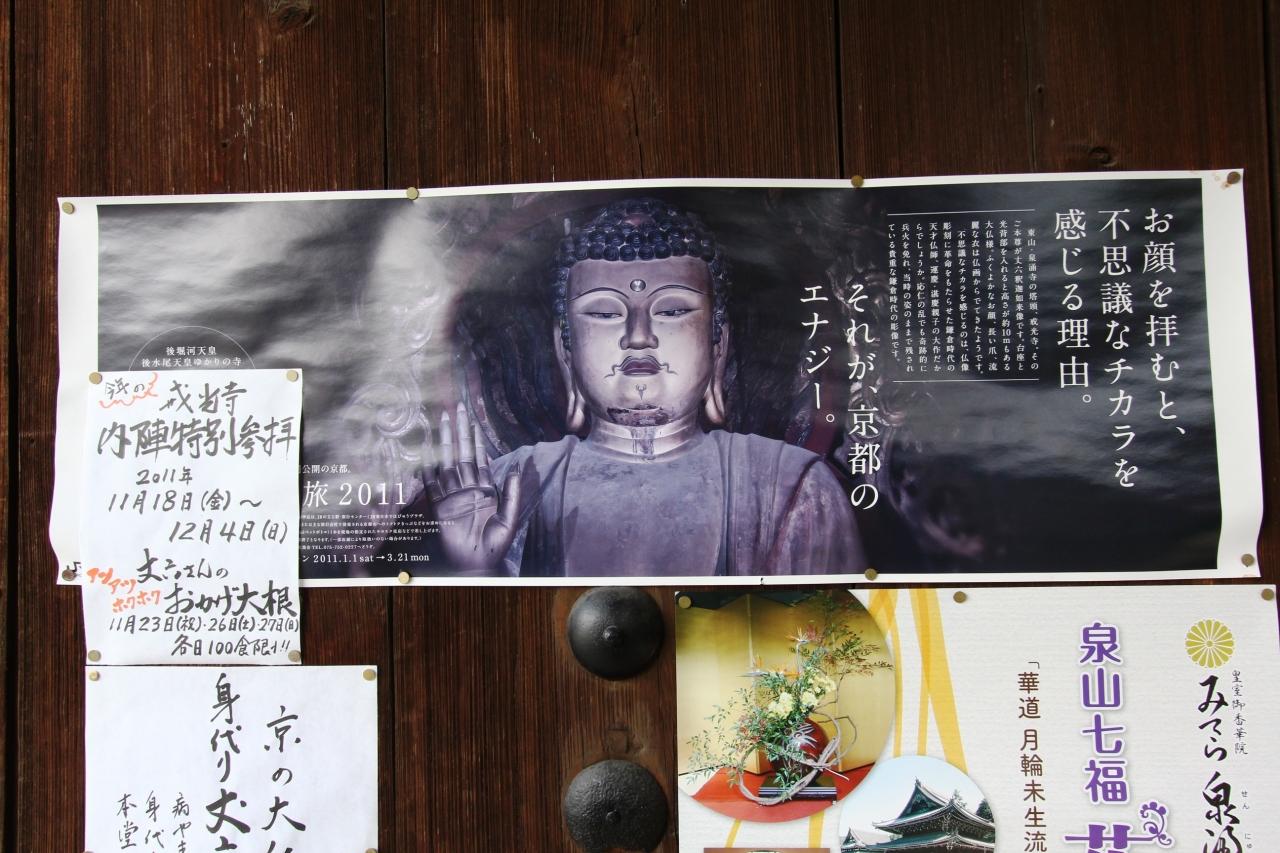 お顔を拝むと、
不思議なチカラを
感じる理由。
東山・泉涌寺の塔頭、戒光寺。その
ご本尊が丈六釈迦如来像です。台座と
光背部を入れると高さが約10mもある
大仏様。ふくよかなお顔、長い爪、流
麗な衣は仏画からでてきたようです。
不思議なチカラを感じるのは、仏像
彫刻に革命をもたらせた鎌倉時代の
天才仏師、運慶・湛慶親子の大作だか
らでしょうか。応仁の乱でも奇跡的に
兵火を免れ、当時の姿のままで残され
ている貴重な鎌倉時代の彫像です。
それが、京都の
エナジー。
後堀河天皇
後水尾天皇ゆかりの寺
公開の京都。
旅 2011
ン 2011.1.1 sat→3.21 mon
戒光寺
内陣特別参拝
2011年
11月18日(金)〜
12月4日(日)
丈六さんの
アツアツ
ホクホク
おかげ大根
11月23日(祝)・26日(土)・27日(日)
各日100食限り!!
京の大
身代り丈
病や
身代
本堂
皇室御香華院
みてら泉涌
せん
にゅ
泉山七福
「華道 月輪未生流